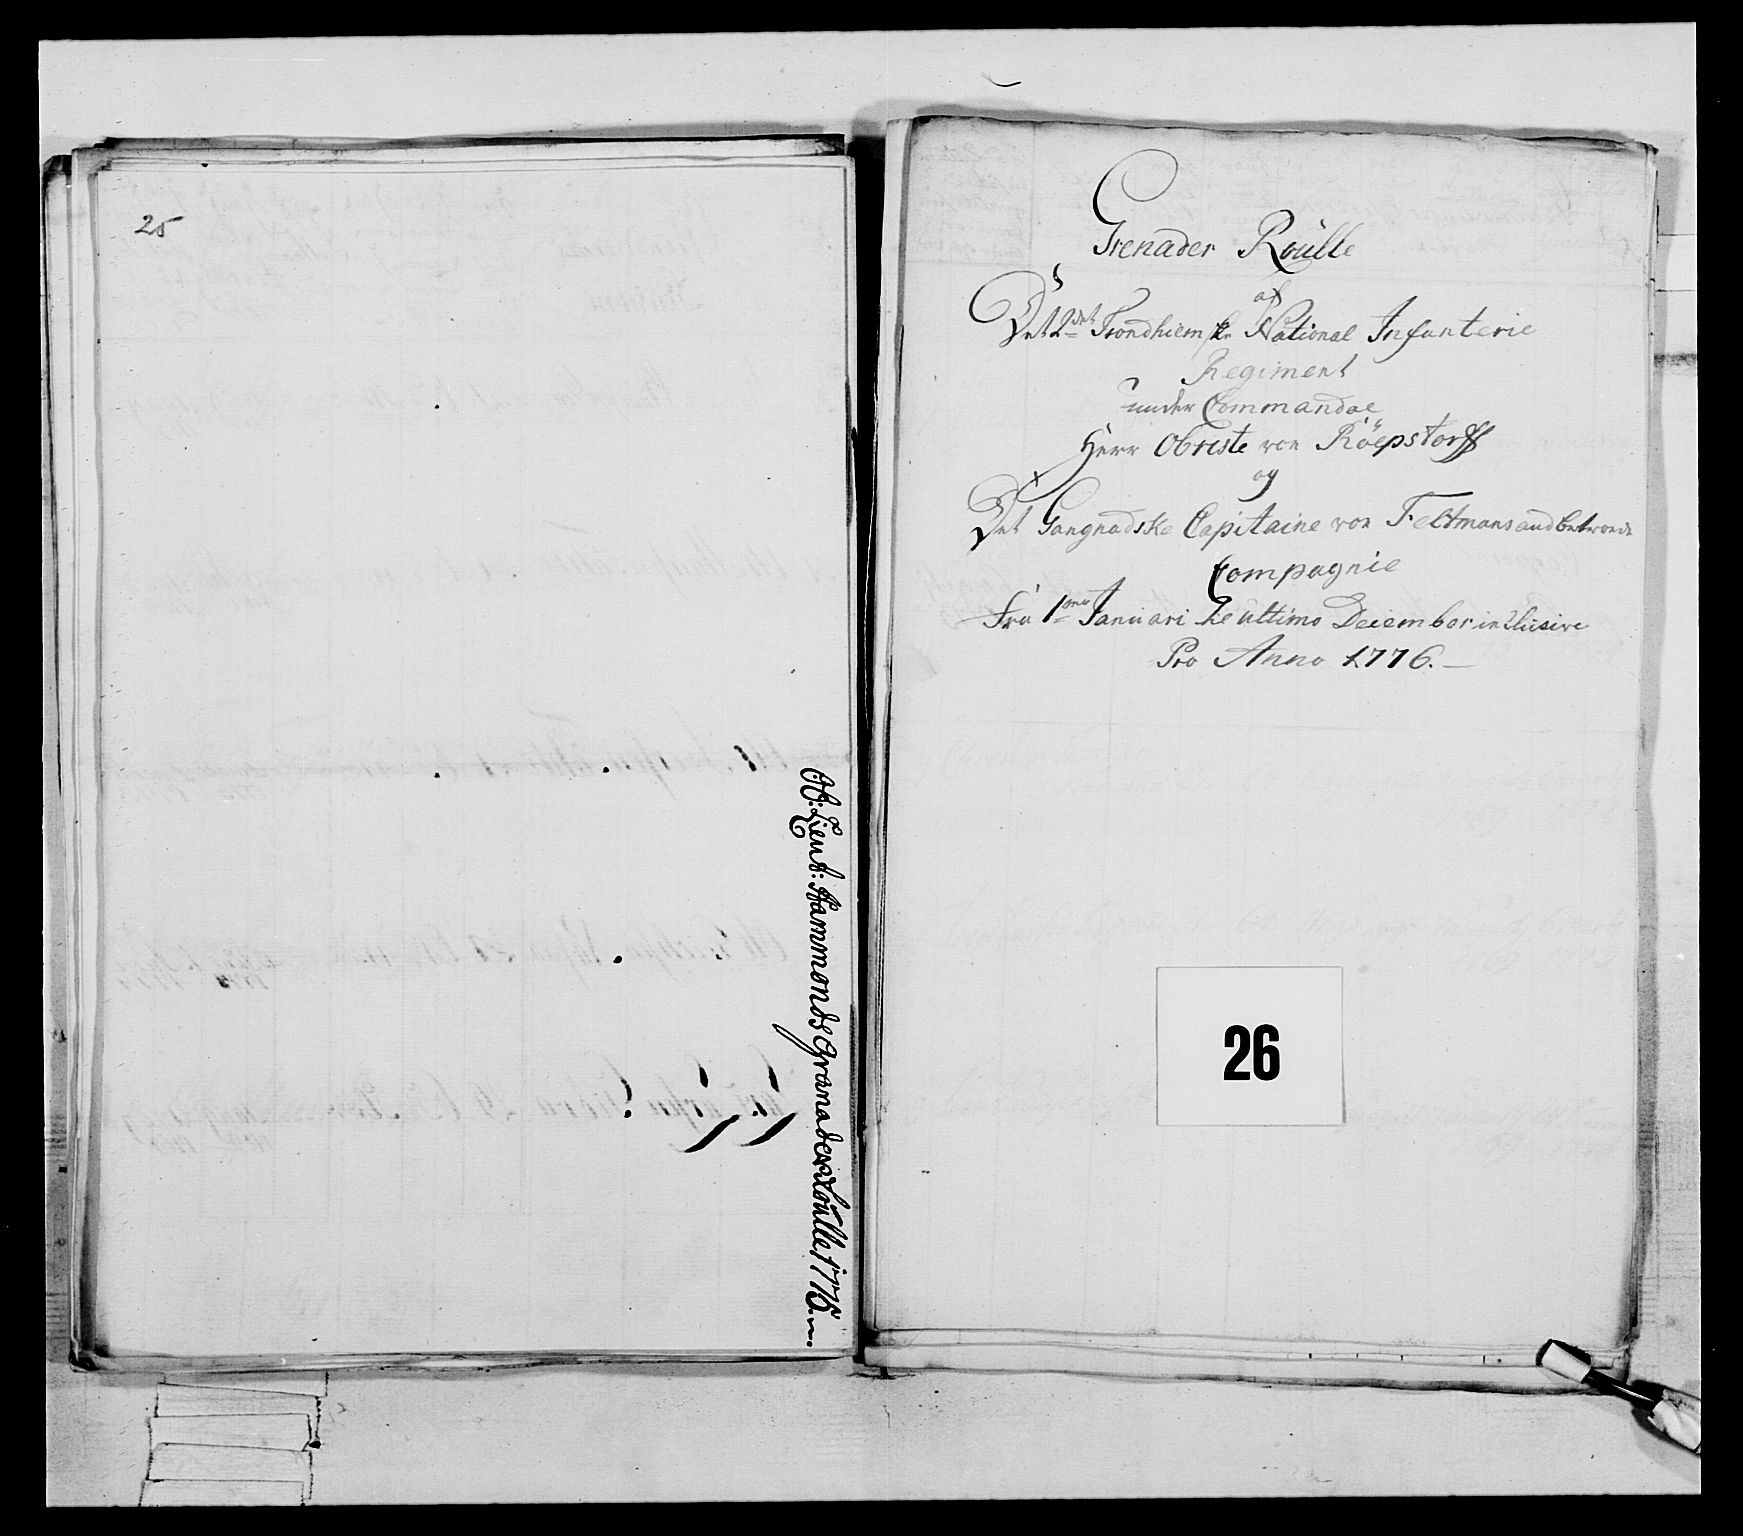 25
Ob: Lieut: Hammonds Granadeer Roulle, 1776.
Grenader Roülle
af
Det 2det Trondhiemske National Infanterie
Regiment
under Commandoe
Herr Obriste von Röepstorff
og
Det Gangnadske Capitaine von Feltmans anbetroede
Compagnie
Fra 1ma Januari te ultimo December inclusive
Pro Anno 1776.
26